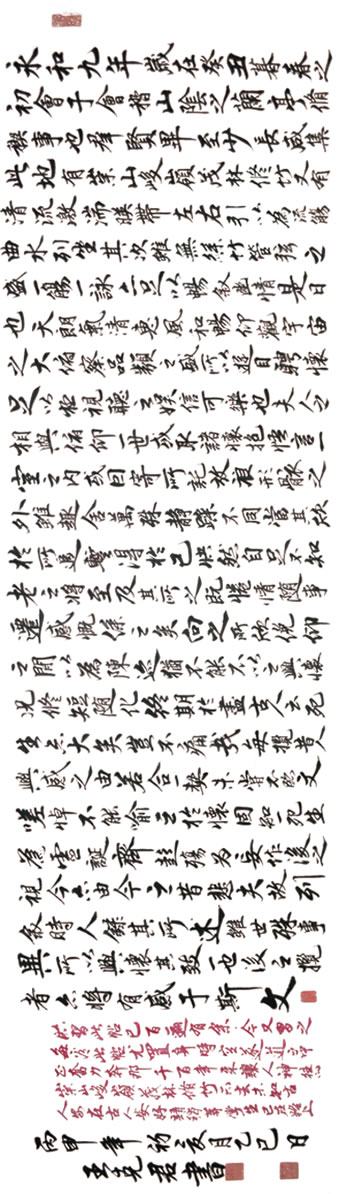 永和九年歲在癸丑暮春之
初會于會稽山陰之蘭亭脩
禊事也群賢畢至少長咸集
此地有崇山峻嶺茂林修竹又有
清流激湍映帶左右引以為流觴
曲水列坐其次雖無絲竹管弦之
盛一觴一詠亦足以暢敘幽情是日
也天朗氣清惠風和暢仰觀宇宙
之大俯察品類之盛所以遊目騁懷
足以極視聽之娛信可樂也夫人之
相與俯仰一世或取諸懷抱悟言一
室之內或因寄所託放浪形骸之
外雖趣舍萬殊靜躁不同當其欣
於所遇蹔得於己快然自足不知
老之將至及其所之既惓情隨事
遷感慨係之矣向之所欣俛仰
之間以為陳迹猶不能不以之興懷
况修短隨化終期於盡古人云死
生亦大矣豈不痛哉每攬昔人
興感之由若合一契未嘗不臨文
嗟悼不能喻之於懷固知一死生
為虛誕齊彭殤為妄作後之
視今亦由今之昔悲夫故列
敘時人錄其所述雖世殊事
異所以興懷其致一也後之攬
者亦將有感于斯文
崇山峻嶺茂林修竹
丙申年初月乙巳日
王克君書